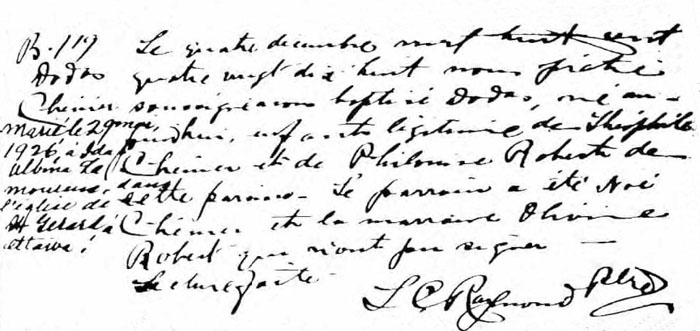 B. 119
Dodas
Chénier
marié le 29 mai
1926, à Ida
Albina La
moureux, dans
l'église de
St Gerard à
Ottawa.
Le quatre décembre mil huit cent
quatre vingt dix huit nous prêtre
soussigné avons baptisé Dodas, né au-
jourd'hui, enfant légitime de Théophile
Chénier et de Philomène Robert de
cette paroisse. Le parrain a été Noé
Chénier et la marraine Olivine
Robert qui n'ont pu signer —
Lecture faite
L C Raymond Ptre